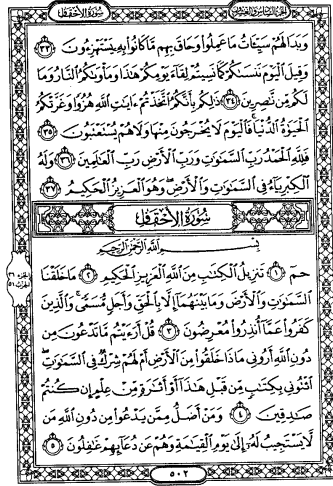 الجزء السادس والعشرون
سُورَةُ الأَحْقَافِ
وَبَدَا لَهُمْ سَيِّـَٔاتُ مَا عَمِلُوا۟ وَحَاقَ بِهِم مَّا كَانُوا۟ بِهِۦ يَسْتَهْزِءُونَ ٣٣
وَقِيلَ ٱلْيَوْمَ نَنسَىٰكُمْ كَمَا نَسِيتُمْ لِقَآءَ يَوْمِكُمْ هَٰذَا وَمَأْوَىٰكُمُ ٱلنَّارُ وَمَا
لَكُم مِّن نَّٰصِرِينَ ٣٤ ذَٰلِكُم بِأَنَّكُمُ ٱتَّخَذْتُمْ ءَايَٰتِ ٱللَّهِ هُزُوًا وَغَرَّتْكُمُ
ٱلْحَيَوٰةُ ٱلدُّنْيَا ۚ فَٱلْيَوْمَ لَا يُخْرَجُونَ مِنْهَا وَلَا هُمْ يُسْتَعْتَبُونَ ٣٥
فَلِلَّهِ ٱلْحَمْدُ رَبِّ ٱلسَّمَٰوَٰتِ وَرَبِّ ٱلْأَرْضِ رَبِّ ٱلْعَٰلَمِينَ ٣٦ وَلَهُ
ٱلْكِبْرِيَآءُ فِى ٱلسَّمَٰوَٰتِ وَٱلْأَرْضِ ۖ وَهُوَ ٱلْعَزِيزُ ٱلْحَكِيمُ ٣٧
سُورَةُ الأَحْقَافِ
بِسْمِ ٱللَّهِ ٱلرَّحْمَٰنِ ٱلرَّحِيمِ
حمٓ ١ تَنزِيلُ ٱلْكِتَٰبِ مِنَ ٱللَّهِ ٱلْعَزِيزِ ٱلْحَكِيمِ ٢ مَا خَلَقْنَا
ٱلسَّمَٰوَٰتِ وَٱلْأَرْضَ وَمَا بَيْنَهُمَآ إِلَّا بِٱلْحَقِّ وَأَجَلٍ مُّسَمًّى ۚ وَٱلَّذِينَ
كَفَرُوا۟ عَمَّآ أُنذِرُوا۟ مُعْرِضُونَ ٣ قُلْ أَرَءَيْتُم مَّا تَدْعُونَ مِن
دُونِ ٱللَّهِ أَرُونِى مَاذَا خَلَقُوا۟ مِنَ ٱلْأَرْضِ أَمْ لَهُمْ شِرْكٌ فِى ٱلسَّمَٰوَٰتِ ۖ
ٱئْتُونِى بِكِتَٰبٍ مِّن قَبْلِ هَٰذَآ أَوْ أَثَٰرَةٍ مِّنْ عِلْمٍ إِن كُنتُمْ
صَٰدِقِينَ ٤ وَمَنْ أَضَلُّ مِمَّن يَدْعُوا۟ مِن دُونِ ٱللَّهِ مَن
لَّا يَسْتَجِيبُ لَهُۥٓ إِلَىٰ يَوْمِ ٱلْقِيَٰمَةِ وَهُمْ عَن دُعَآئِهِمْ غَٰفِلُونَ ٥
٥٠٢